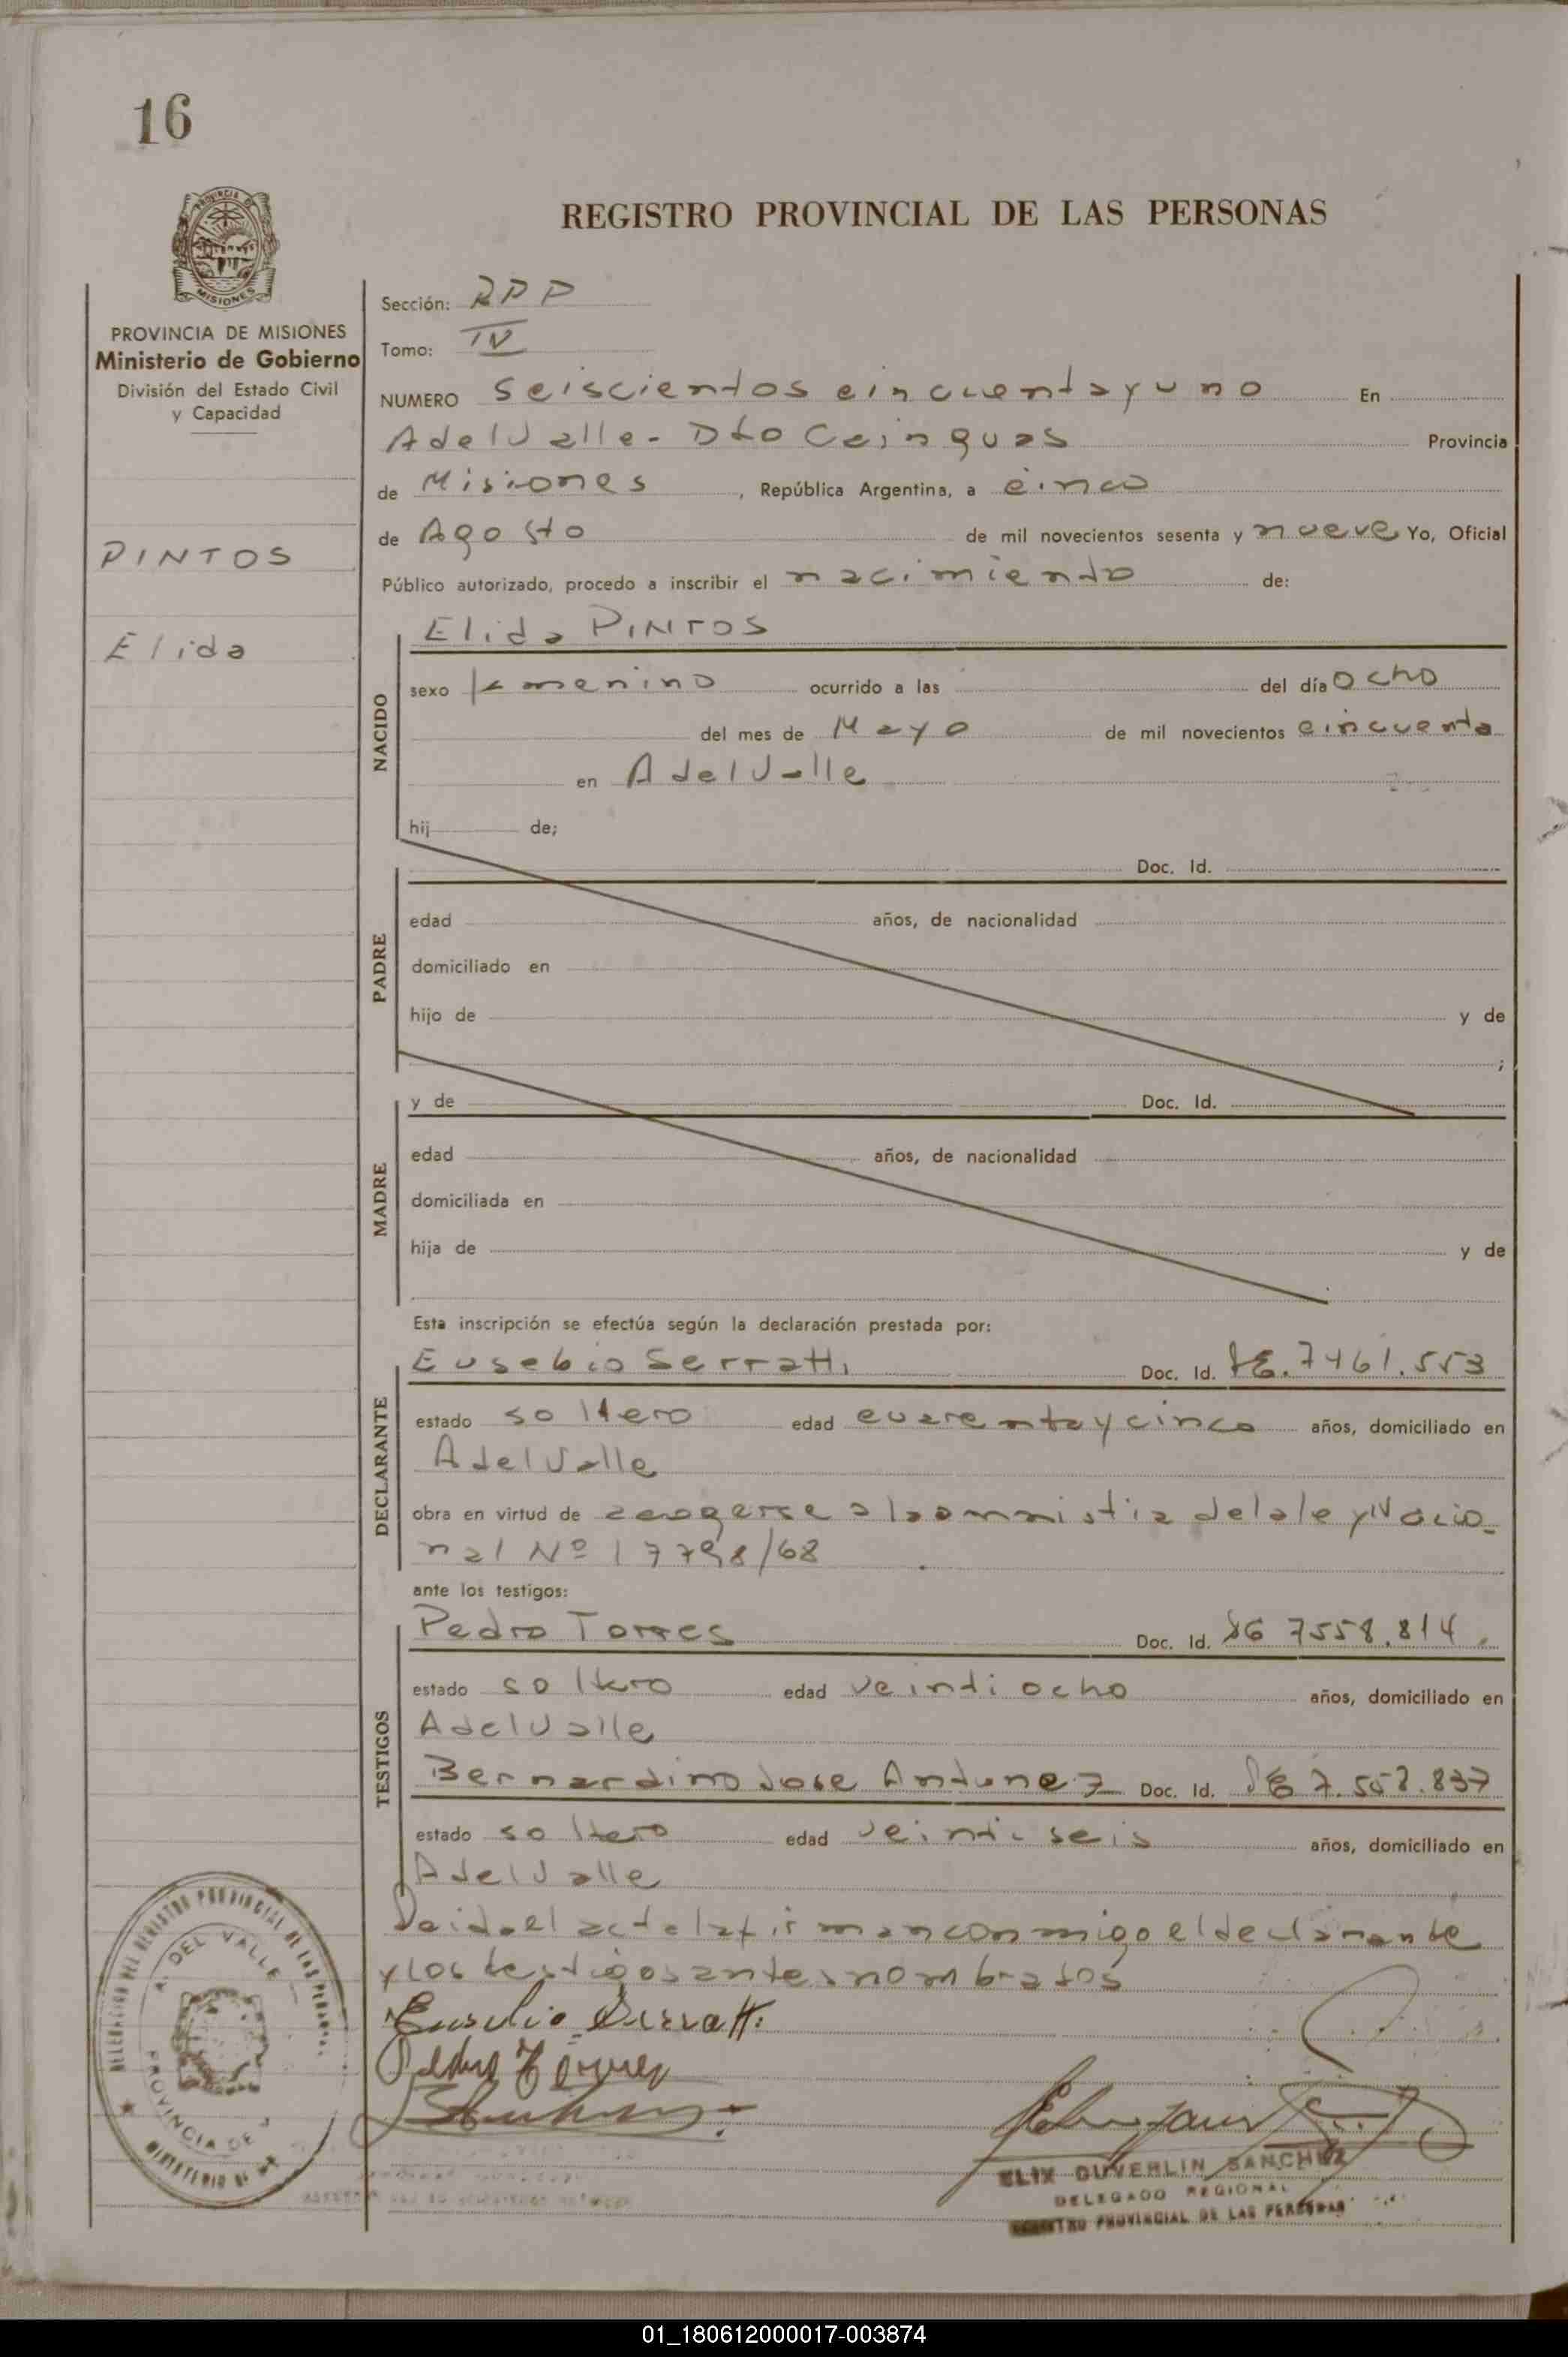 16
REGISTRO PROVINCIAL DE LAS PERSONAS
PROVINCIA DE
MISIONES
PROVINCIA DE MISIONES
Ministerio de Gobierno
División del Estado Civil
y Capacidad
PINTOS
Elida
Sección: RPP
Tomo: IV
NUMERO seiscientos cincuenta y uno En
A del Valle - Dto Cainguas Provincia
de Misiones, República Argentina, a cinco
de Agosto de mil novecientos sesenta y nueve Yo, Oficial
Público autorizado, procedo a inscribir el nacimiento de:
NACIDO
Elida PINTOS
sexo femenino ocurrido a las del día ocho
del mes de Mayo de mil novecientos cincuenta
en A del Valle
hij de;
PADRE
Doc. Id.
edad años, de nacionalidad
domiciliado en
hijo de y de
;
MADRE
y de Doc. Id.
edad años, de nacionalidad
domiciliada en
hija de y de
Esta inscripción se efectúa según la declaración prestada por:
DECLARANTE
Eusebio Serratti Doc. Id. 7461.553
estado soltero edad cuarenta y cinco años, domiciliado en
A del Valle
obra en virtud de acogerse a la amnistia de la ley Nacio-
nal Nº 17798/68
ante los testigos:
TESTIGOS
Pedro Torres Doc. Id. 7558.814.
estado soltero edad veintiocho años, domiciliado en
A del Valle
Bernardino Jose Antunez Doc. Id. 7.558.837
estado soltero edad veintiseis años, domiciliado en
A del Valle
Leida el acta la firman conmigo el declarante
y los testigos antes nombrados
Eusebio Serratti
Pedro Torres
DELEGACION DEL REGISTRO PROVINCIAL DE LAS PERSONAS
A. DEL VALLE
PROVINCIA DE
MINISTERIO DE
ELIX DUVERLIN SANCHEZ
DELEGADO REGIONAL
REGISTRO PROVINCIAL DE LAS PERSONAS
01_180612000017-003874